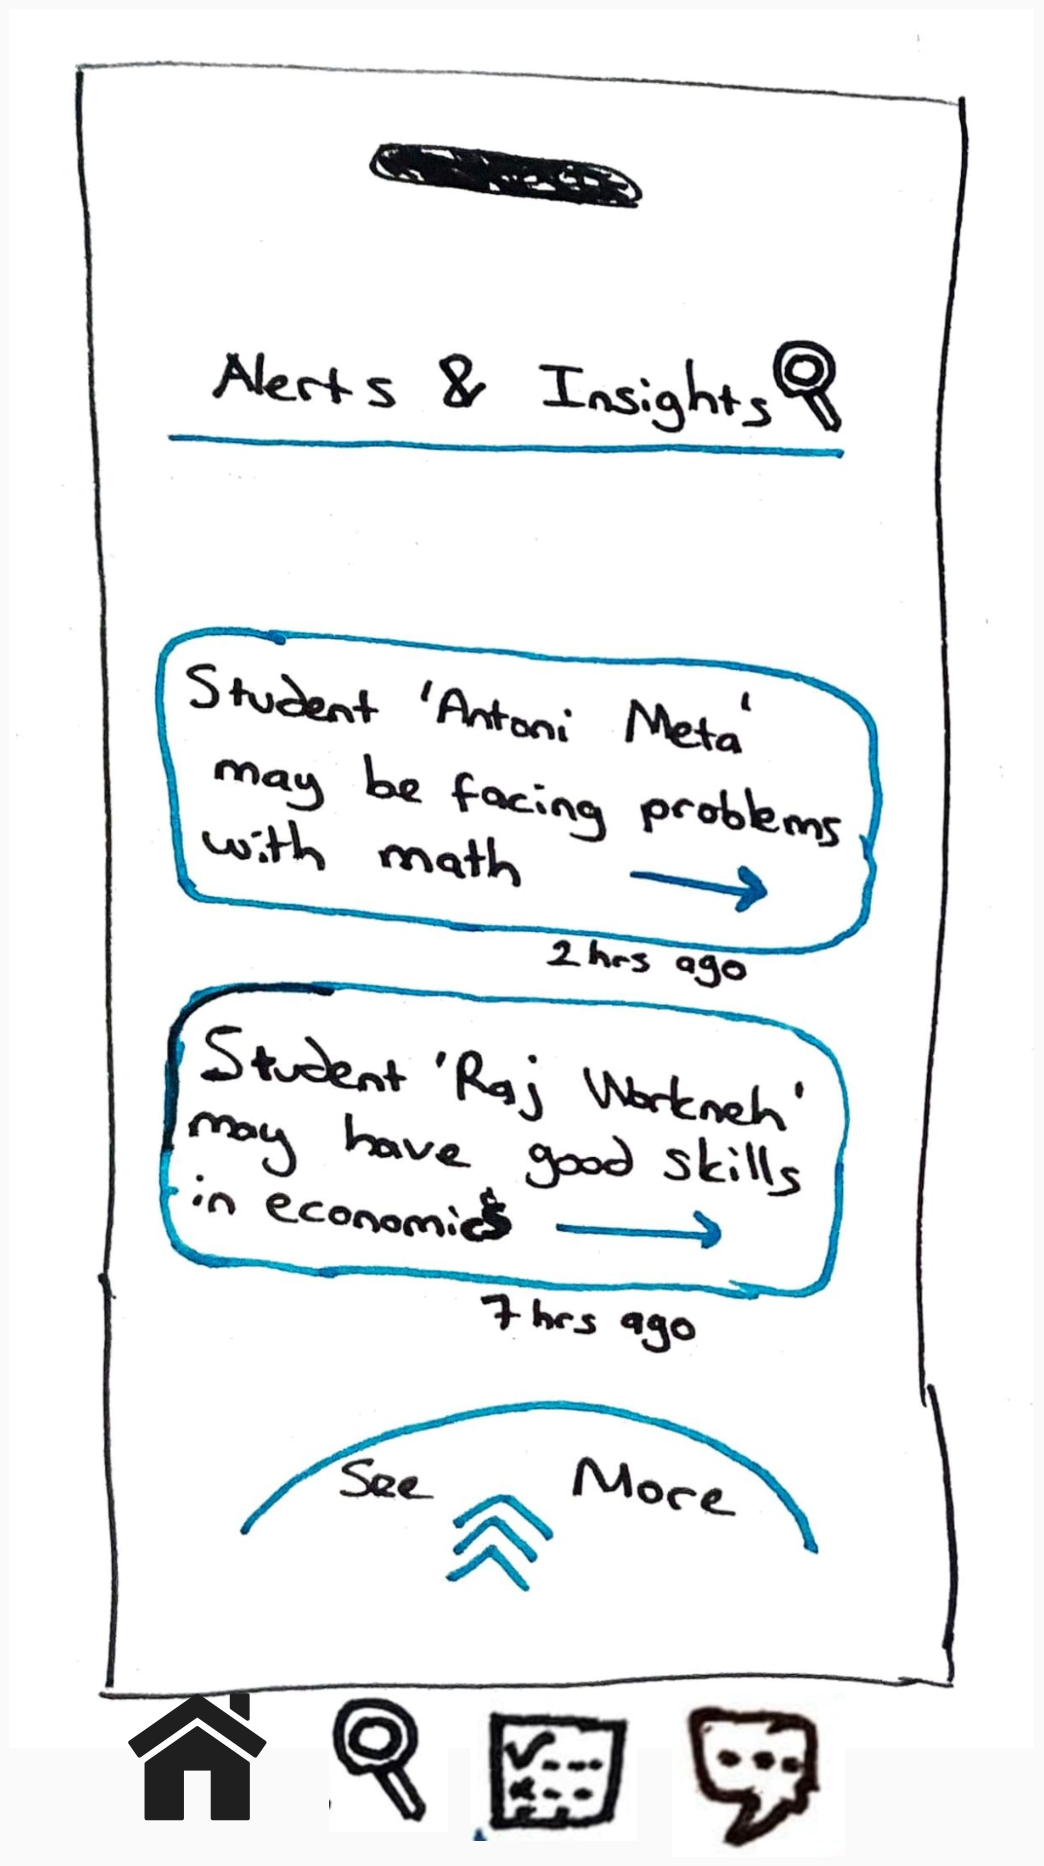 Alerts & Insights
Student 'Antoni Meta'
may be facing problems
with math
2 hrs ago
Student 'Raj Workneh'
may have good skills
in economics
7 hrs ago
See More